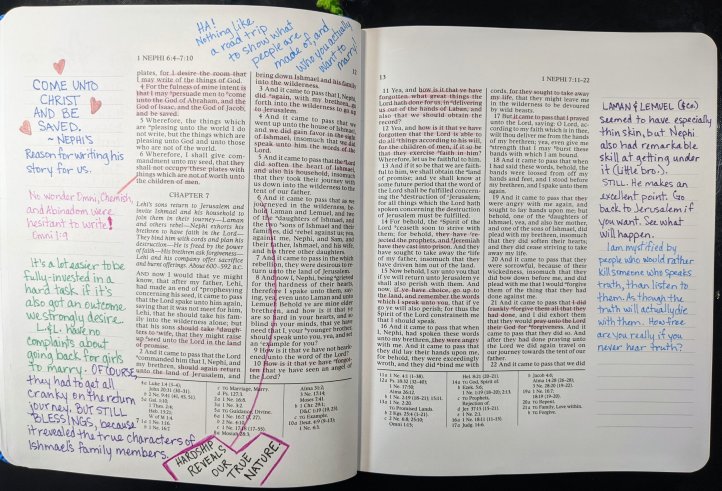 HA!
Nothing like
a road trip
to show what
people are
made of and
who you actually
want to marry!
COME UNTO
CHRIST
AND BE
SAVED.
~ NEPHI'S
Reason for writing his
story for us.
No wonder Omni, Chemish,
and Abinadom were
hesitant to write!
Omni 1-9
It's a lot easier to be
fully-invested in a
hard task if it's
also got an outcome
we strongly desire.
L&L have no
complaints about
going back for girls
to marry. OF COURSE,
they had to get all
cranky on the return
journey. BUT STILL
"BLESSINGS," because
it revealed the true characters of
Ishmael's family members.
1 NEPHI 6:4–7:10
12
plates, for I desire the room that
I may write of the things of God.
4 For the fulness of mine intent is
that I may persuade men to come
unto the God of Abraham, and the
God of Isaac, and the God of Jacob,
and be saved.
5 Wherefore, the things which
are pleasing unto the world I do
not write, but the things which are
pleasing unto God and unto those
who are not of the world.
6 Wherefore, I shall give com-
mandment unto my seed, that they
shall not occupy these plates with
things which are not of worth unto
the children of men.
CHAPTER 7
Lehi's sons return to Jerusalem and
invite Ishmael and his household to
join them in their journey—Laman
and others rebel—Nephi exhorts his
brethren to have faith in the Lord—
They bind him with cords and plan his
destruction—He is freed by the power
of faith—His brethren ask forgiveness—
Lehi and his company offer sacrifice
and burnt offerings. About 600–592 B.C.
AND now I would that ye might
know, that after my father, Lehi,
had made an end of prophesying
concerning his seed, it came to pass
that the Lord spake unto him again,
saying that it was not meet for him,
Lehi, that he should take his fam-
ily into the wilderness alone; but
that his sons should take daugh-
ters to wife, that they might raise
up seed unto the Lord in the land
of promise.
2 And it came to pass that the Lord
commanded him that I, Nephi, and
my brethren, should again return
unto the land of Jerusalem, and
bring down Ishmael and his family
into the wilderness.
3 And it came to pass that I, Nephi,
did again, with my brethren, go
forth into the wilderness to go up
to Jerusalem.
4 And it came to pass that we
went up unto the house of Ishmael,
and we did gain favor in the sight
of Ishmael, insomuch that we did
speak unto him the words of the
Lord.
5 And it came to pass that the Lord
did soften the heart of Ishmael,
and also his household, insomuch
that they took their journey with
us down into the wilderness to the
tent of our father.
6 And it came to pass that as we
journeyed in the wilderness, be-
hold Laman and Lemuel, and two
of the daughters of Ishmael, and
the two sons of Ishmael and their
families, did rebel against us; yea,
against me, Nephi, and Sam, and
their father, Ishmael, and his wife,
and his three other daughters.
7 And it came to pass in the which
rebellion, they were desirous to re-
turn unto the land of Jerusalem.
8 And now I, Nephi, being grieved
for the hardness of their hearts,
therefore I spake unto them, say-
ing, yea, even unto Laman and unto
Lemuel: Behold ye are mine elder
brethren, and how is it that ye
are so hard in your hearts, and so
blind in your minds, that ye have
need that I, your younger brother,
should speak unto you, yea, and set
an example for you?
9 How is it that ye have not heark-
ened unto the word of the Lord?
10 How is it that ye have forgotten
that ye have seen an angel of
the Lord?
HARDSHIP
REVEALS
OUR
TRUE
NATURE.
13
1 NEPHI 7:11–22
11 Yea, and how is it that ye have
forgotten what great things the
Lord hath done for us, in delivering
us out of the hands of Laban, and
also that we should obtain the
record?
12 Yea, and how is it that ye have
forgotten that the Lord is able to
do all things according to his will,
for the children of men, if it so be
that they exercise faith in him?
Wherefore, let us be faithful to him.
13 And if it so be that we are faith-
ful to him, we shall obtain the land
of promise; and ye shall know at
some future period that the word of
the Lord shall be fulfilled concern-
ing the destruction of Jerusalem;
for all things which the Lord hath
spoken concerning the destruction
of Jerusalem must be fulfilled.
14 For behold, the Spirit of the
Lord ceaseth soon to strive with
them; for behold, they have re-
jected the prophets, and Jeremiah
have they cast into prison. And they
have sought to take away the life
of my father, insomuch that they
have driven him out of the land.
15 Now behold, I say unto you that
if ye will return unto Jerusalem ye
shall also perish with them. And
now, if ye have choice, go up to
the land, and remember the words
which I speak unto you, that if ye
go ye will also perish; for thus the
Spirit of the Lord constraineth me
that I should speak.
16 And it came to pass that when
I, Nephi, had spoken these words
unto my brethren, they were angry
with me. And it came to pass that
they did lay their hands upon me,
for behold, they were exceedingly
wroth, and they did bind me with
cords, for they sought to take away
my life, that they might leave me
in the wilderness to be devoured
by wild beasts.
17 But it came to pass that I prayed
unto the Lord, saying: O Lord, ac-
cording to my faith which is in thee,
wilt thou deliver me from the hands
of my brethren; yea, even give me
strength that I may burst these
bands with which I am bound.
18 And it came to pass that when
I had said these words, behold, the
bands were loosed from off my
hands and feet, and I stood before
my brethren, and I spake unto them
again.
19 And it came to pass that they
were angry with me again, and
sought to lay hands upon me; but
behold, one of the daughters of
Ishmael, yea, and also her mother,
and one of the sons of Ishmael, did
plead with my brethren, insomuch
that they did soften their hearts;
and they did cease striving to take
away my life.
20 And it came to pass that they
were sorrowful, because of their
wickedness, insomuch that they
did bow down before me, and did
plead with me that I would forgive
them of the thing that they had
done against me.
21 And it came to pass that I did
frankly forgive them all that they
had done, and I did exhort them
that they would pray unto the Lord
their God for forgiveness. And it
came to pass that they did so. And
after they had done praying unto
the Lord we did again travel on
our journey towards the tent of our
father.
22 And it came to pass that we did
LAMAN & LEMUEL
seemed to have especially
thin skin, but Nephi
also had remarkable
skill at getting under
it (little bro.).
STILL. He makes an
excellent point. Go
back to Jerusalem if
you want. See what
will happen.
I am mystified by
people who would rather
kill someone who speaks
truth, than listen to
them. As though the
truth will actually die
with them. How free
are you really if you
never hear truth?